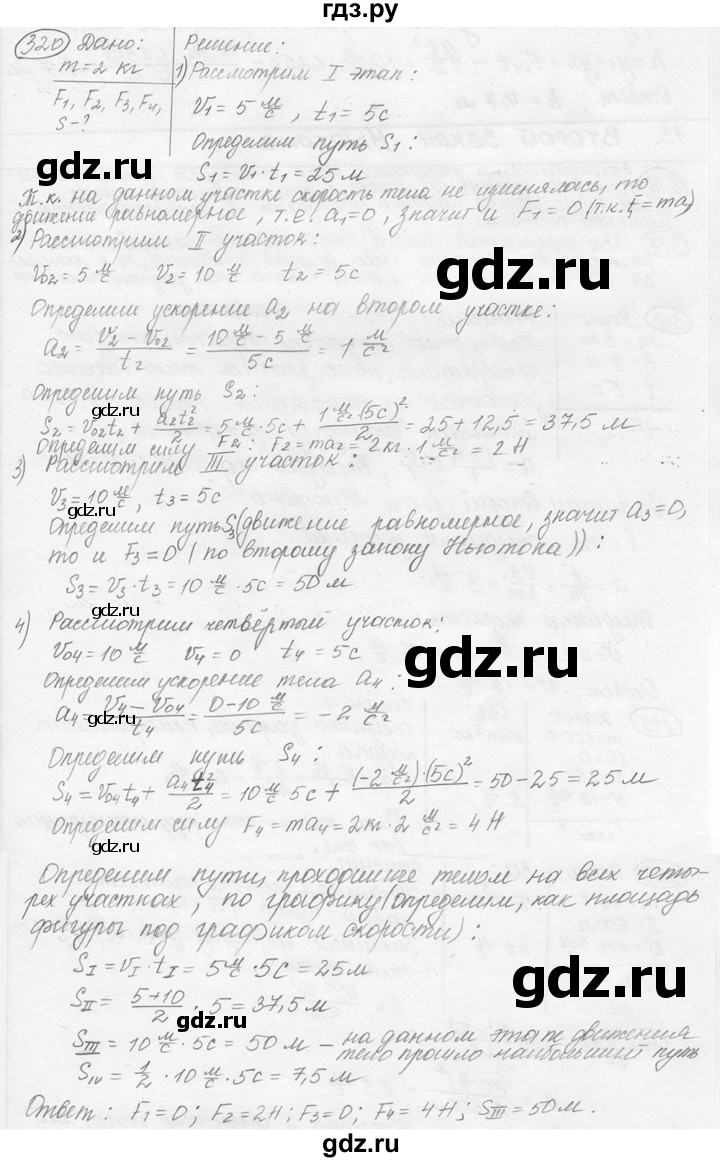 гдз.ру
320 Дано:
m=2 кг
F₁, F₂, F₃, F₄,
S-?
Решение:
1) Рассмотрим I этап:
V₁ = 5 м/с, t₁ = 5с
Определим путь S₁:
S₁ = V₁·t₁ = 25 м
Т.к. на данном участке скорость тела не изменялась, то
движение равномерное, т.е. a₁=0, значит и F₁=0 (т.к. F=ma)
2) Рассмотрим II участок:
V₀₂ = 5 м/с V₂ = 10 м/с t₂ = 5с
Определим ускорение a₂ на втором участке:
a₂ = (V₂ - V₀₂)/t₂ = (10 м/с - 5 м/с)/5с = 1 м/с²
gdz.ru
Определим путь S₂:
S₂ = V₀₂t₂ + a₂t₂²/2 = 5 м/с·5с + 1 м/с²·(5с)²/2 = 25+12,5 = 37,5 м
gdz.ru
Определим силу F₂: F₂ = ma₂ = 2кг·1 м/с² = 2 Н
3) Рассмотрим III участок:
V₃ = 10 м/с, t₃ = 5с
gdz.ru
Определим путь S₃ (движение равномерное, значит a₃=0,
то и F₃=0 (по второму закону Ньютона)):
gdz.ru
S₃ = V₃·t₃ = 10 м/с·5с = 50 м
4) Рассмотрим четвёртый участок:
V₀₄ = 10 м/с V₄ = 0 t₄ = 5с
gdz.ru
Определим ускорение тела a₄:
a₄ = (V₄ - V₀₄)/t₄ = (0-10 м/с)/5с = -2 м/с²
Определим путь S₄:
gdz.ru
S₄ = V₀₄t₄ + a₄t₄²/2 = 10 м/с 5с + (-2 м/с²)·(5с)²/2 = 50-25 = 25 м
Определим силу F₄ = ma₄ = 2кг·2 м/с² = 4 Н
gdz.ru
Определим пути, проходимые телом на всех четы-
рех участках, по графику (определим, как площадь
фигуры под графиком скорости):
S_I = V_I·t_I = 5 м/с·5с = 25 м
gdz.ru
S_II = (5+10)/2·5 = 37,5 м
gdz.ru
S_III = 10 м/с·5с = 50 м – на данном этапе движения
тело прошло наибольший путь
S_IV = 1/2·10 м/с·5с = 7,5 м
Ответ: F₁=0; F₂=2Н; F₃=0; F₄=4Н; S_III=50м.
gdz.ru